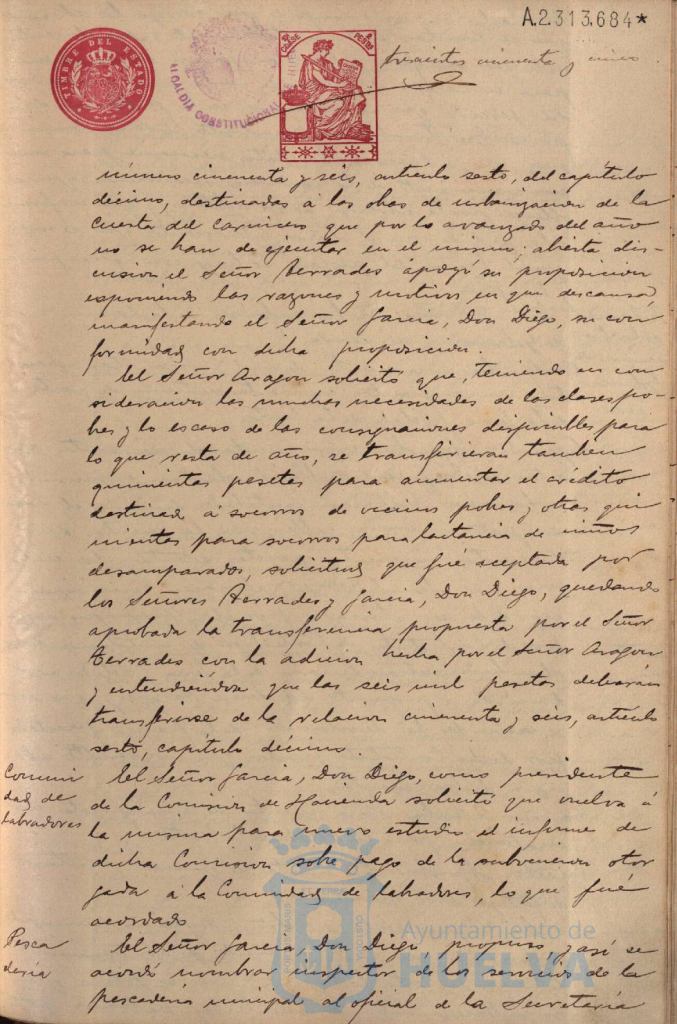 A.2.313.684*
TIMBRE DEL ESTADO
ALCALDIA CONSTITUCIONAL DE
trescientos cincuenta y cinco
número cincuenta y seis, artículo sesto, del capítulo
décimo, destinadas á las obras de urbanización de la
Cuesta del Carnicero que por lo avanzado del año
no se han de ejecutar en el mismo; abierta dis-
cusion el Señor Terrades apoyó su proposicion
esponiendo las razones y motivos en que descansa,
manifestando el Señor Garcia, Don Diego, su con
formidad con dicha proposicion.
El Señor Aragon solicitó que, teniendo en con
sideracion las muchas necesidades de las clases po-
bres y lo escaso de las consignaciones disponibles para
lo que resta de año, se transfirieran tambien
quinientas pesetas para aumentar el crédito
destinado á socorros de vecinos pobres y otras qui
nientas para socorros para lactancia de niños
desamparados, solicitud que fué aceptada por
los Señores Terrades y Garcia, Don Diego, quedando
aprobada la transferencia propuesta por el Señor
Terrades con la adicion hecha por el Señor Aragon
y entendiéndose que las seis mil pesetas deberán
transferirse de la relacion cincuenta y seis, artículo
sesto, capítulo décimo.
Comuni
dad de
Labradores
El Señor Garcia, Don Diego, como presidente
de la Comision de Hacienda solicitó que vuelva á
la misma para nuevo estudio el informe de
dicha Comision sobre pago de la subvencion otor
gada á la Comunidad de Labradores, lo que fué
acordado
Pesca
dería
El Señor Garcia, Don Diego propuso, y así se
acordó nombrar inspector de los servicios de la
pescadería municipal al oficial de la Secretaría
Ayuntamiento de
HUELVA